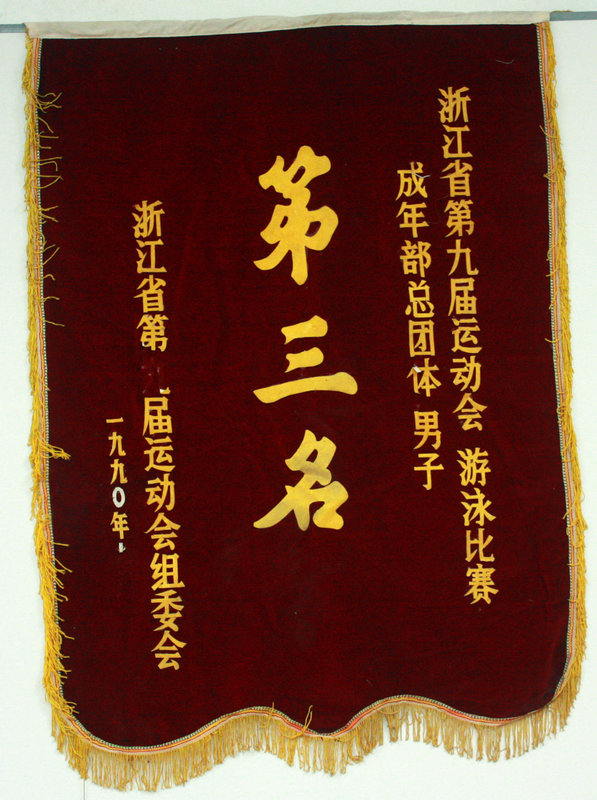 浙江省第九届运动会 游泳比赛
成年部总团体 男子
第三名
浙江省第 届运动会组委会
一九九0年